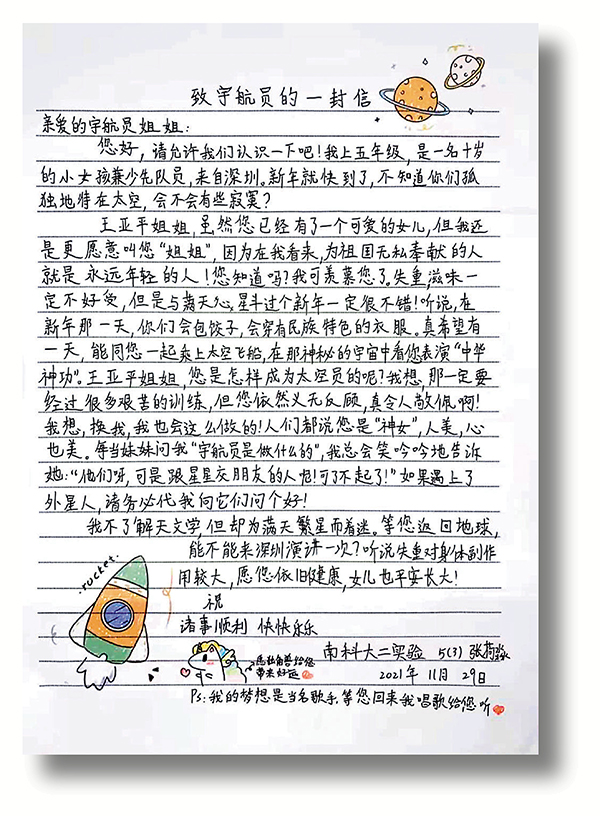 致宇航员的一封信
亲爱的宇航员姐姐：
您好，请允许我们认识一下吧！我上五年级，是一名十岁
的小女孩兼少先队员，来自深圳。新年就快到了，不知道你们孤
独地待在太空，会不会有些寂寞？
王亚平姐姐，虽然您已经有了一个可爱的女儿，但我还
是更愿意叫您“姐姐”，因为在我看来，为祖国无私奉献的人
就是永远年轻的人！您知道吗？我可羡慕您了。失重滋味一
定不好受，但是与满天心星斗过个新年一定很不错！听说，在
新年那一天，你们会包饺子，会穿有民族特色的衣服。真希望有
一天，能同您一起乘上太空飞船，在那神秘的宇宙中看您表演“中华
神功”。王亚平姐姐，您是怎样成为太空员的呢？我想，那一定要
经过很多艰苦的训练，但您依然义无反顾，真令人敬佩啊！
我想，换我，我也会这么做的！人们都说您是“神女”，人美，心
也美。每当妹妹问我“宇航员是做什么的”，我总会笑吟吟地告诉
她：“他们呀，可是跟星星交朋友的人呢！可了不起了！”如果遇上了
外星人，请务必代我向它们问个好！
我不了解天文学，但却为满天繁星而着迷。等您返回地球，
能不能来深圳演讲一次？听说失重对身体副作
用较大，愿您依旧健康，女儿也平安长大！
rocket.
祝
诸事顺利 快快乐乐
南科大二实验 5(3) 张
愿独角兽给您
带来好运
2021年 11月 29日
Ps：我的梦想是当名歌手，等您回来我唱歌给您听